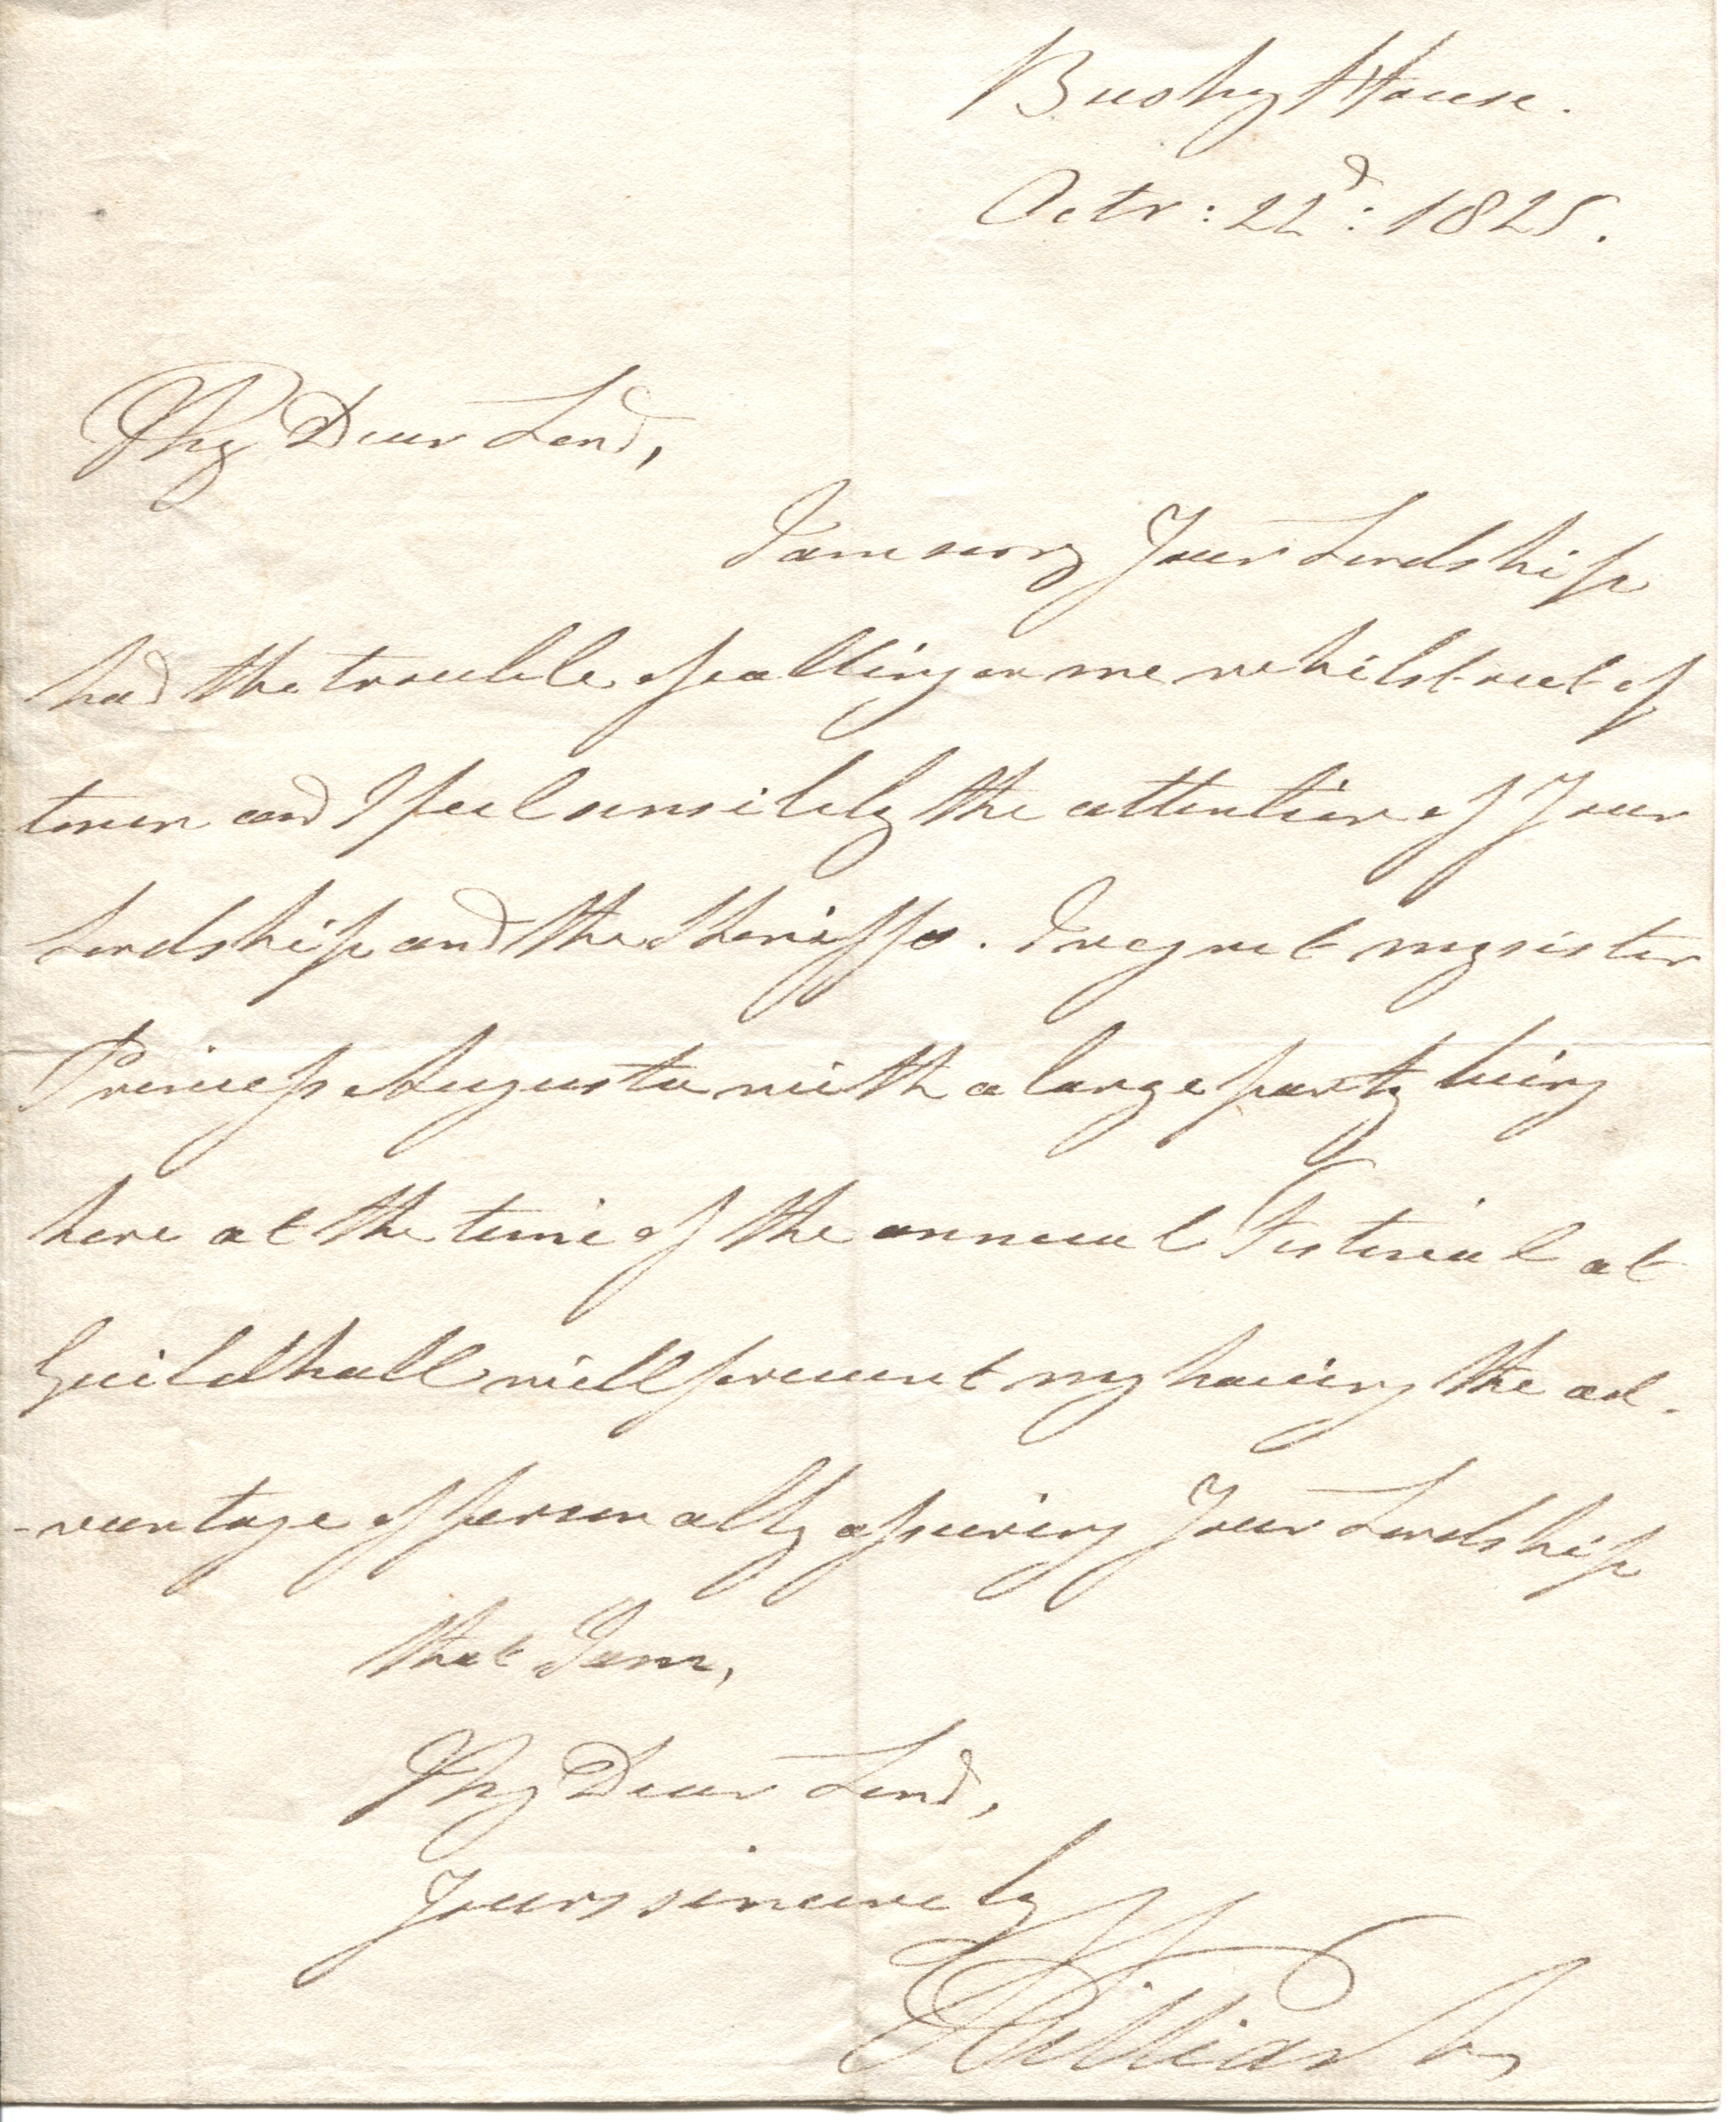 Bushy House.
Octr: 22d: 1825.
My Dear Lord,
I am sorry Your Lordship
had the trouble of calling on me whilst out of
town and I feel sensibly the attention of Your
Lordship and the Sheriffs. I regret my sister
Princess Augusta with a large party being
here at the time of the annual Festival at
Guildhall will prevent my having the ad-
-vantage of personally assuring Your Lordship
that I am,
My Dear Lord,
Yours sincerely
William